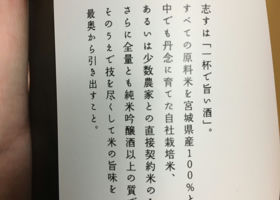 志すは「一杯で旨い酒」。
すべての原料米を宮城県産100%と
中でも丹念に育てた自社栽培米、
あるいは少数農家との直接契約米の
さらに全量とも純米吟醸酒以上の質で
そのうえで技を尽くして米の旨味を
最奥から引き出すこと。